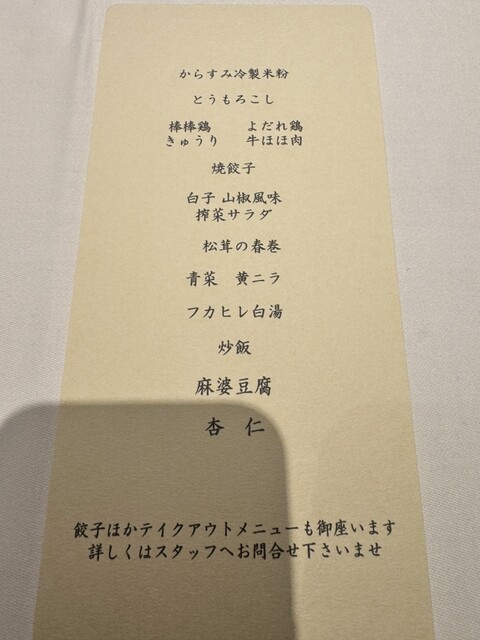 からすみ冷製米粉
とうもろこし
棒棒鶏　　よだれ鶏
きゅうり　　牛ほほ肉
焼餃子
白子 山椒風味
搾菜サラダ
松茸の春巻
青菜　黄ニラ
フカヒレ白湯
炒飯
麻婆豆腐
杏　仁
餃子ほかテイクアウトメニューも御座います
詳しくはスタッフへお問合せ下さいませ